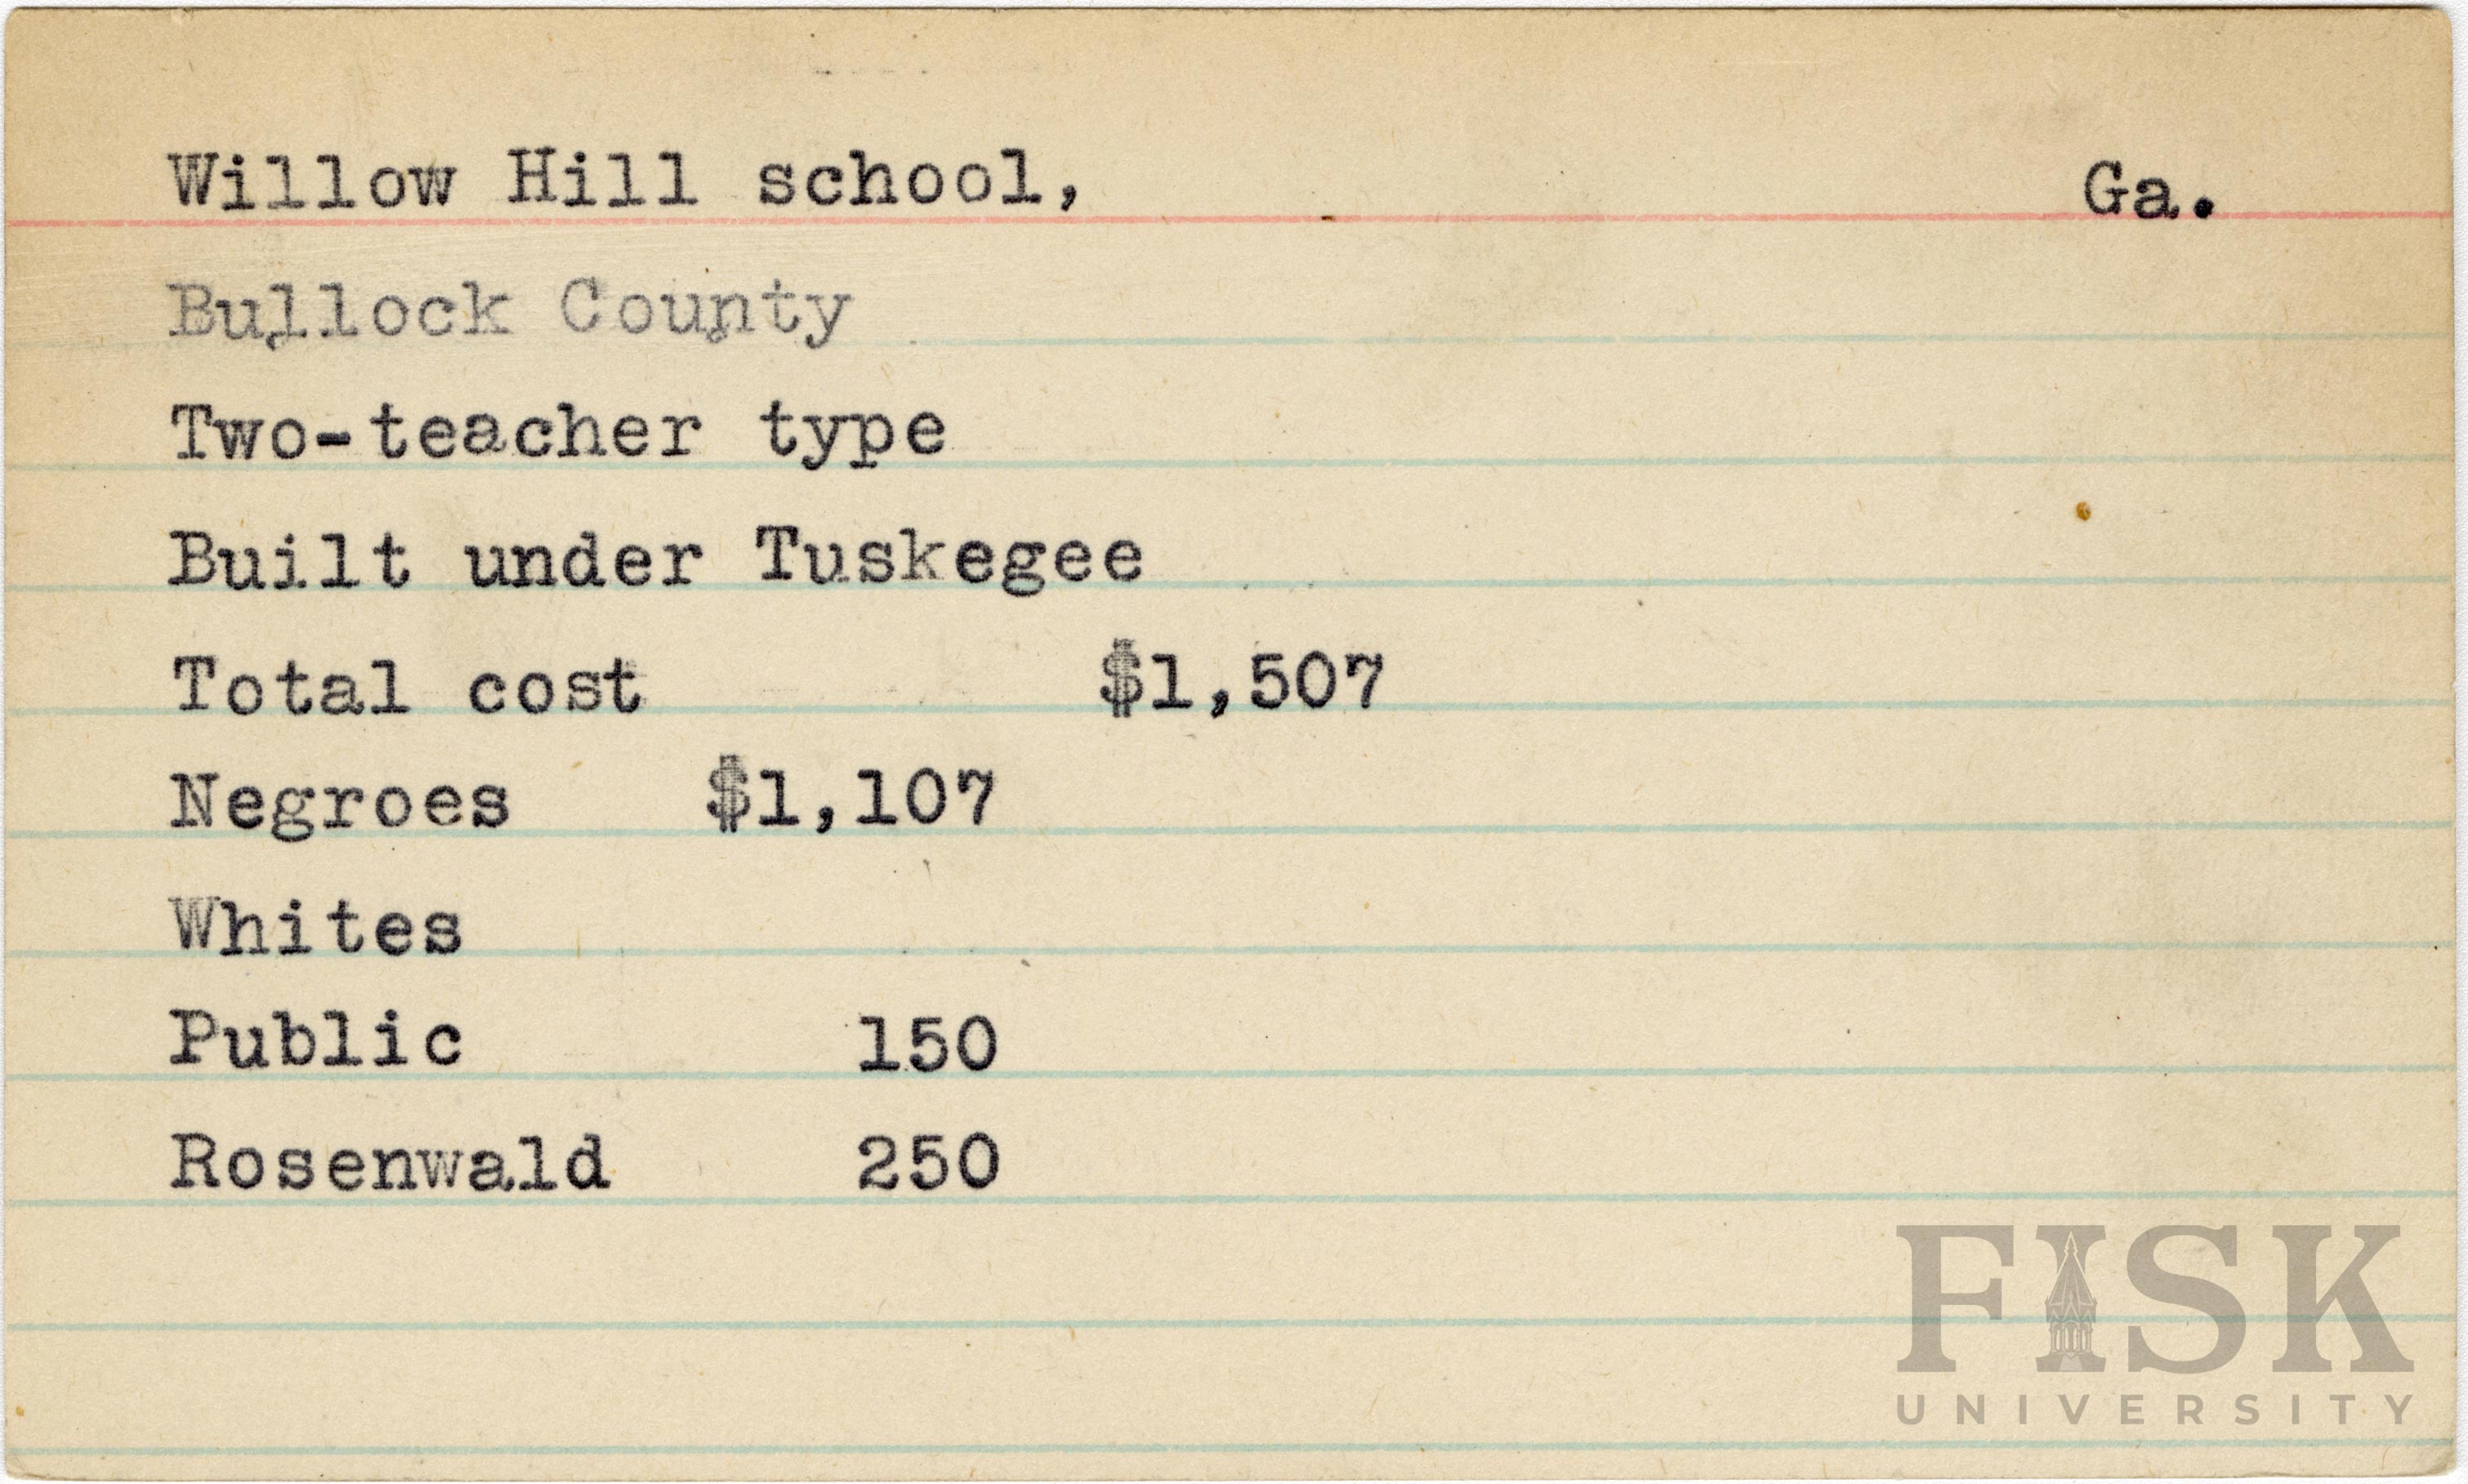 Willow Hill school, Ga.
Bullock County
Two-teacher type
Built under Tuskegee
Total cost $1,507
Negroes $1,107
Whites
Public 150
Rosenwald 250
FISK
UNIVERSITY